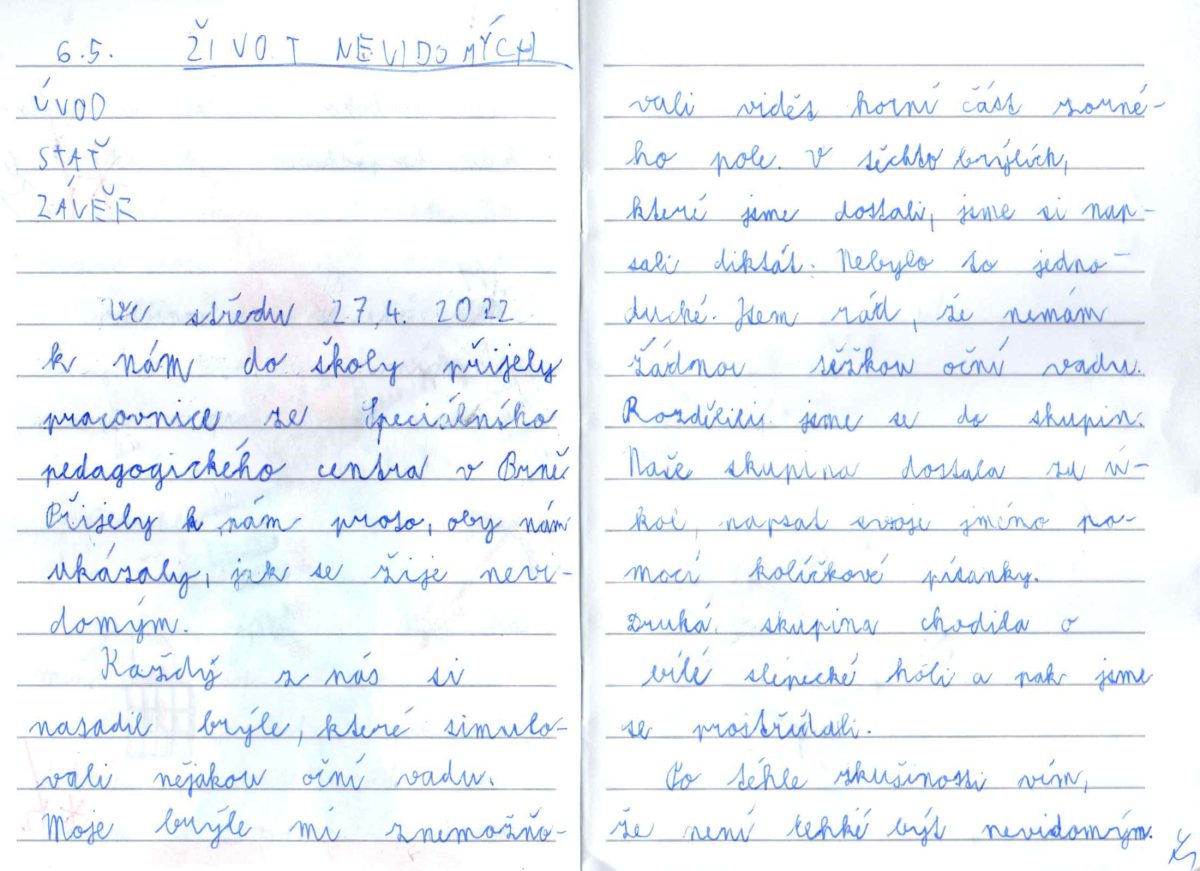 6.5. ŽIVOT NEVIDOMÝCH
ÚVOD
STAŤ
ZÁVĚR
Ve středu 27.4. 2022
k nám do školy přijely
pracovnice ze Speciálního
pedagogického centra v Brně
Přijely k nám proto, aby nám
ukázaly, jak se žije nevi-
domým.
Každý z nás si
nasadil brýle, které simulo-
vali nějakou oční vadu.
Moje brýle mi znemožňo-
vali vidět horní část zorné-
ho pole. V těchto brýlích,
které jsme dostali, jsme si nap-
sali diktát. Nebylo to jedno-
duché. Jsem rád, že nemám
žádnou těžkou oční vadu.
Rozdělili jsme se do skupin.
Naše skupina dostala za ú-
kol, napsat svoje jméno po-
mocí kolíčkové písanky.
Druhá skupina chodila o
bílé slepecké holi a pak jsme
se prostřídali.
Po téhle zkušinosti vím,
že není lehké být nevidomým.